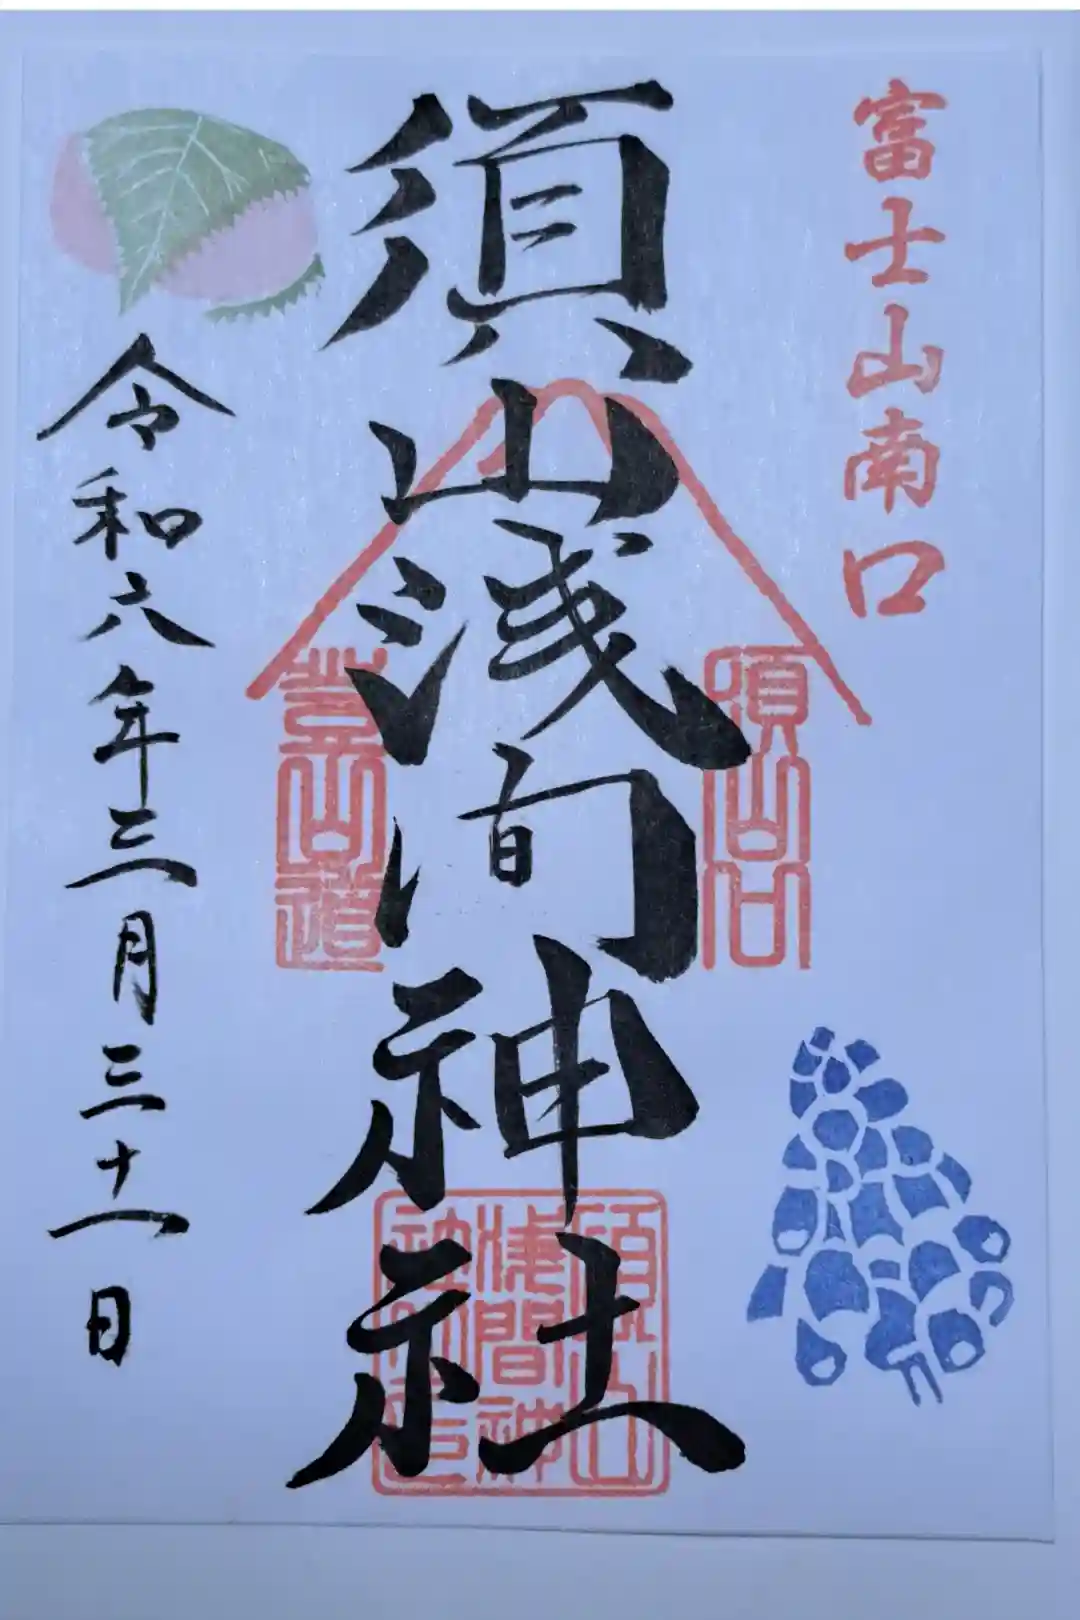 富士山南口
須山浅间神社
須山口
登山道
須山
浅間神
社
令和六年三月三十一日